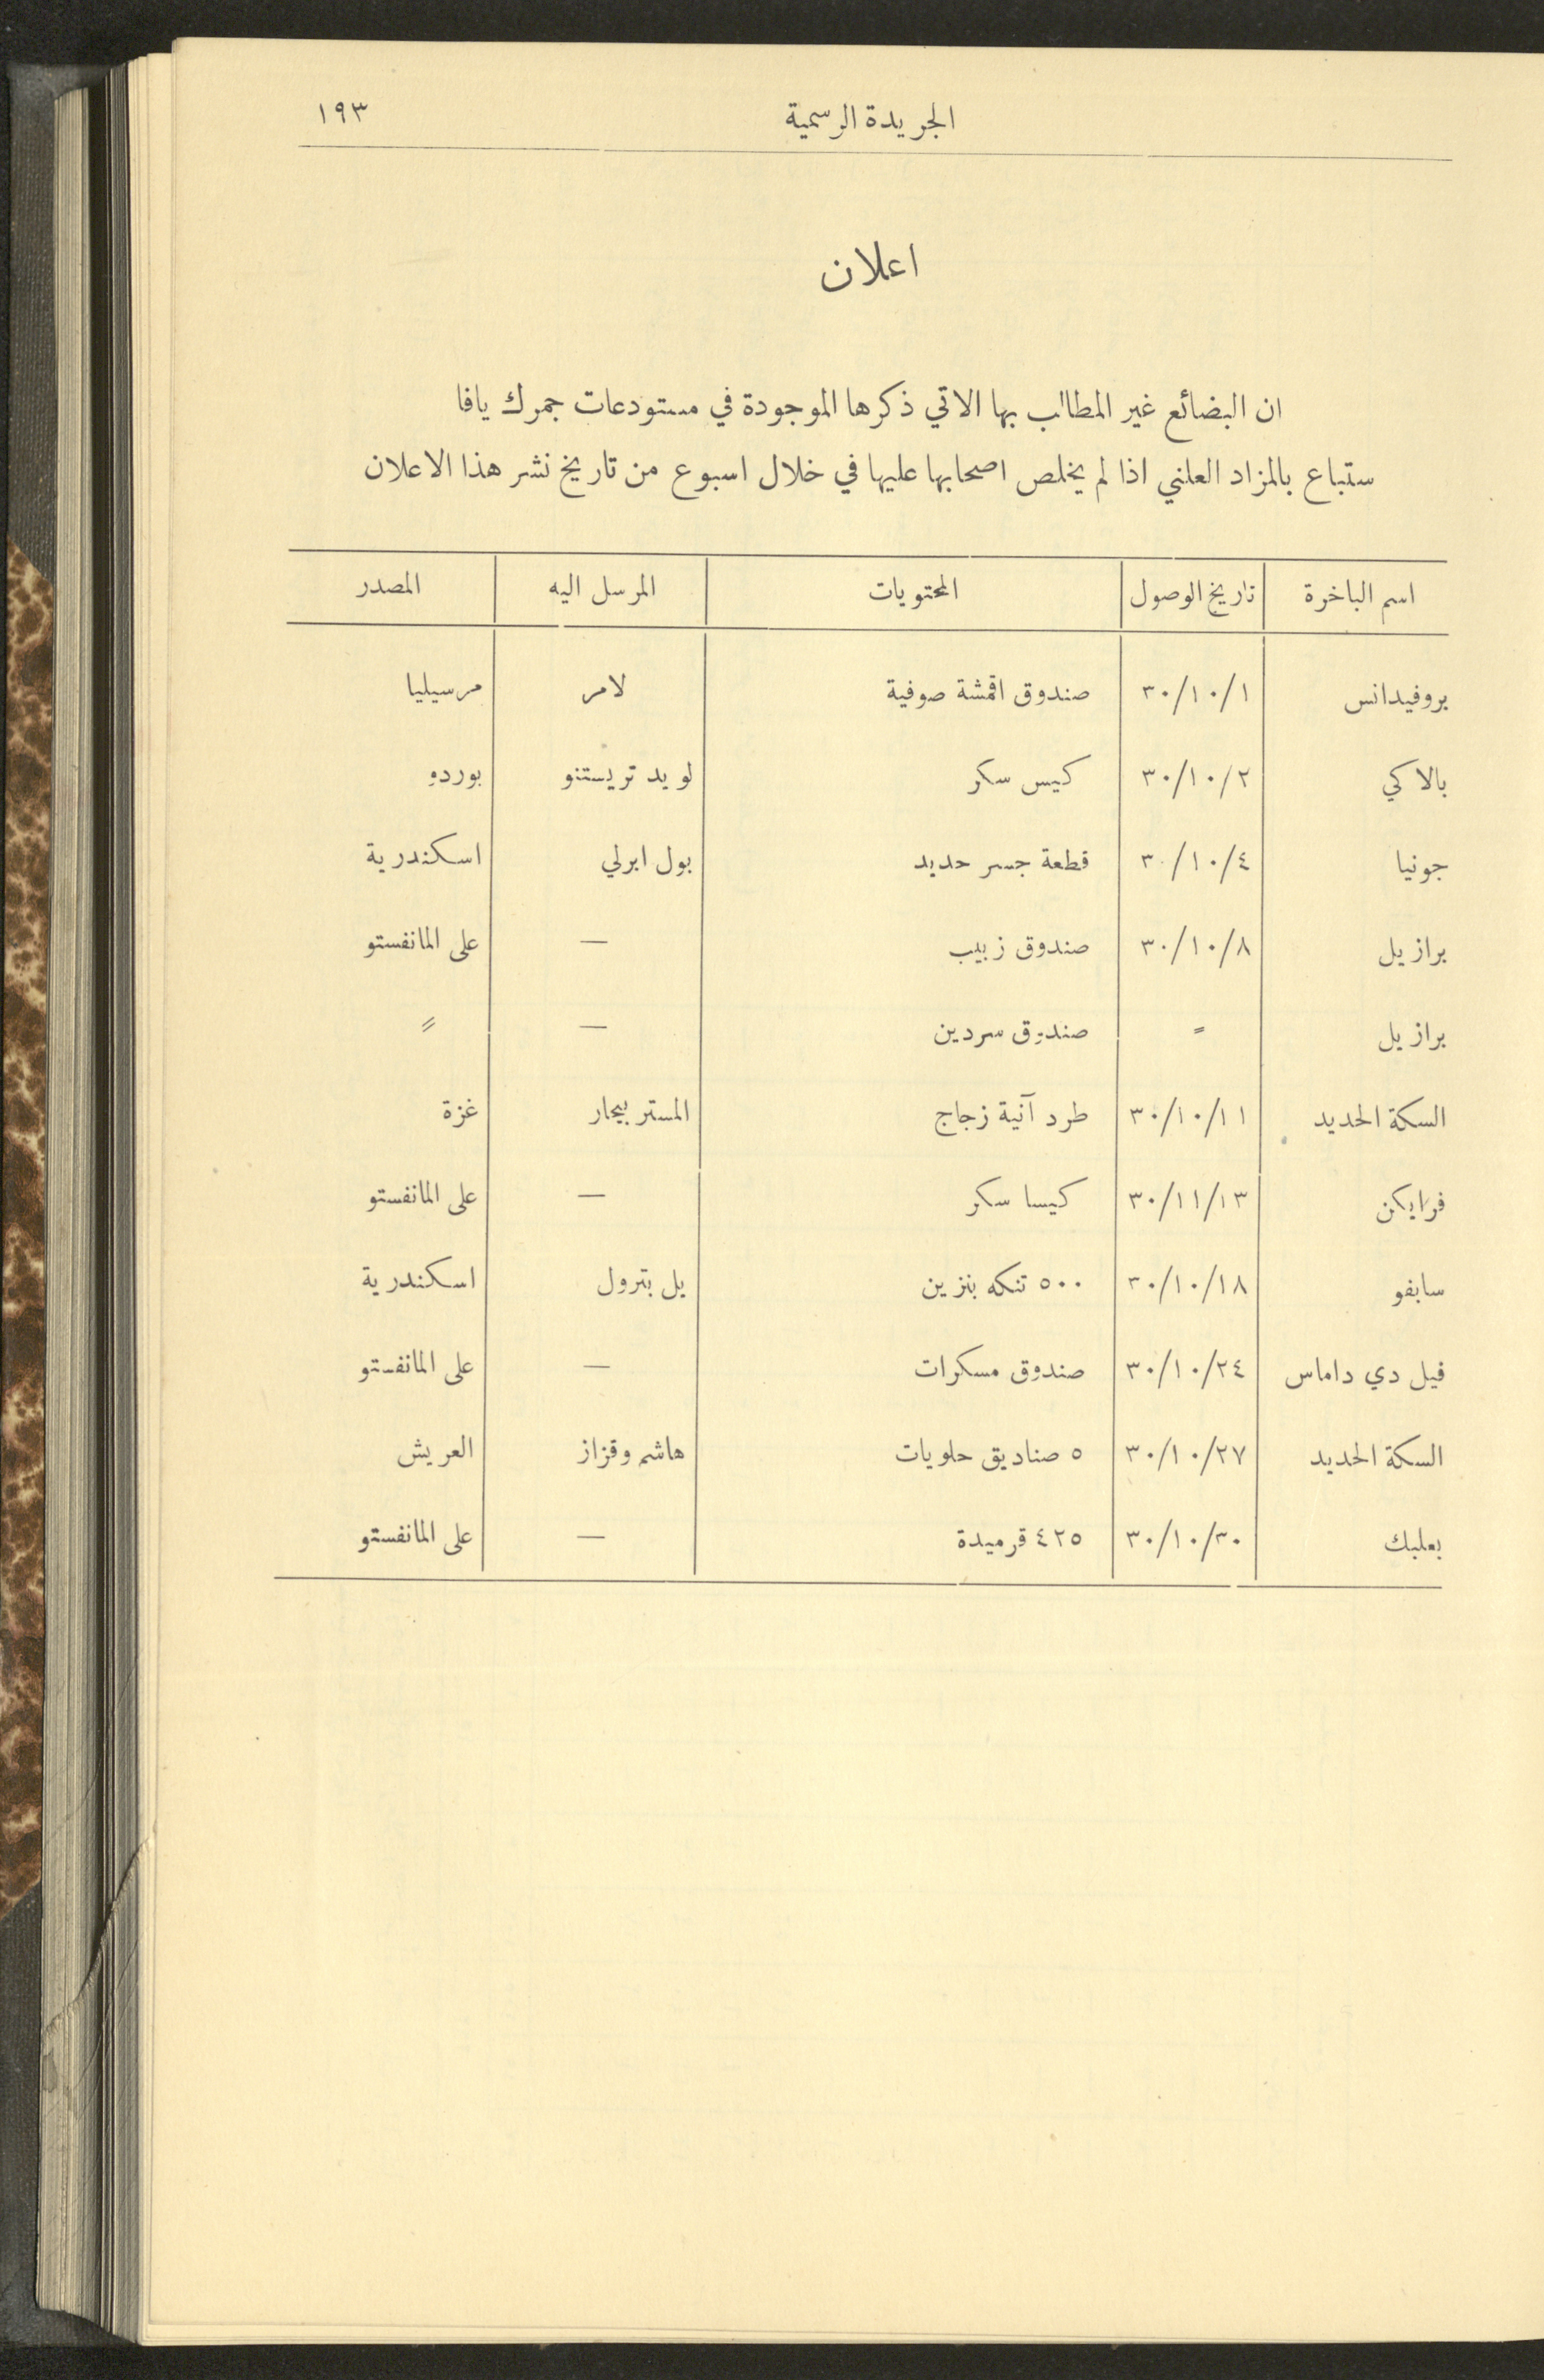 الجريدة الرسمية ١٩٣
اعلان
ان البضائع غير المطالب بها الاتي ذكرها الموجودة في مستودعات جمرك يافا
ستباع بالمزاد العلني اذا لم يخلص اصحابها عليها في خلال اسبوع من تاريخ نشر هذا الاعلان
اسم الباخرة تاريخ الوصول المحتويات المرسل اليه المصدر
بروفيدانس ٣٠/١٠/١ صندوق اقمشة صوفية لامر مرسيليا
بالاكي ٣٠/١٠/٢ كيس سكر لويد تريستنو بوردو
جونيا ٣٠/١٠/٤ قطعة جسر حديد بول ابرلي اسكندرية
برازيل ٣٠/١٠/٨ صندوق زبيب — على المانفستو
برازيل = صندوق سردين — =
السكة الحديد ٣٠/١٠/١١ طرد آنية زجاج المستر بيجار غزة
فرايكن ٣٠/١١/١٣ كيسا سكر — على المانفستو
سابفو ٣٠/١٠/١٨ ٥٠٠ تنكه بنزين بل بترول اسكندرية
فيل دي داماس ٣٠/١٠/٢٤ صندوق مسكرات — على المانفستو
السكة الحديد ٣٠/١٠/٢٧ ٥ صناديق حلويات هاشم وقزاز العريش
بعلبك ٣٠/١٠/٣٠ ٤٢٥ قرميدة — على المانفستو